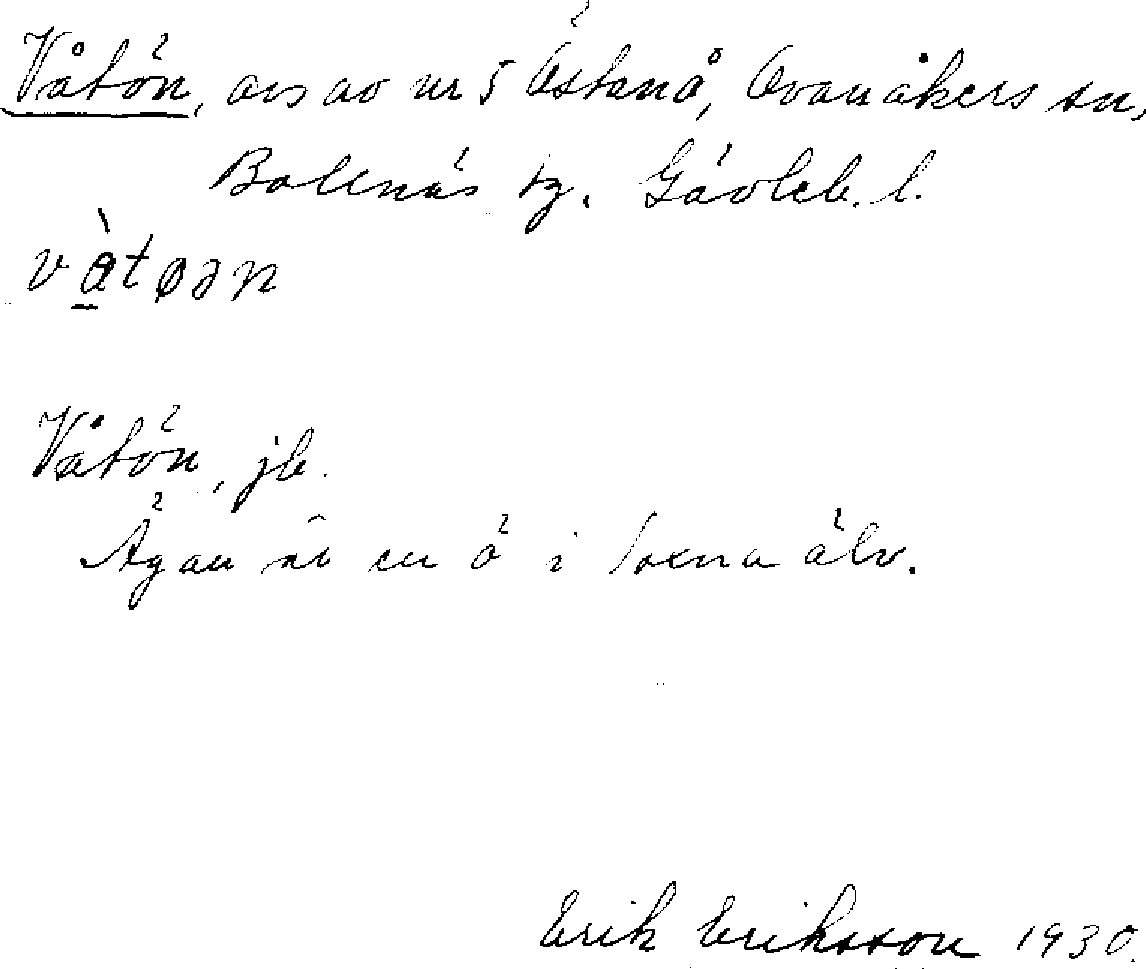 Våtön, avs av nr 5 Östanå, Ovanåkers sn,
Bollnäs tg. Gävleb. l.
Våtön, jb.
Ägan är en ö i Voxna älv.
Erik Eriksson 1930.